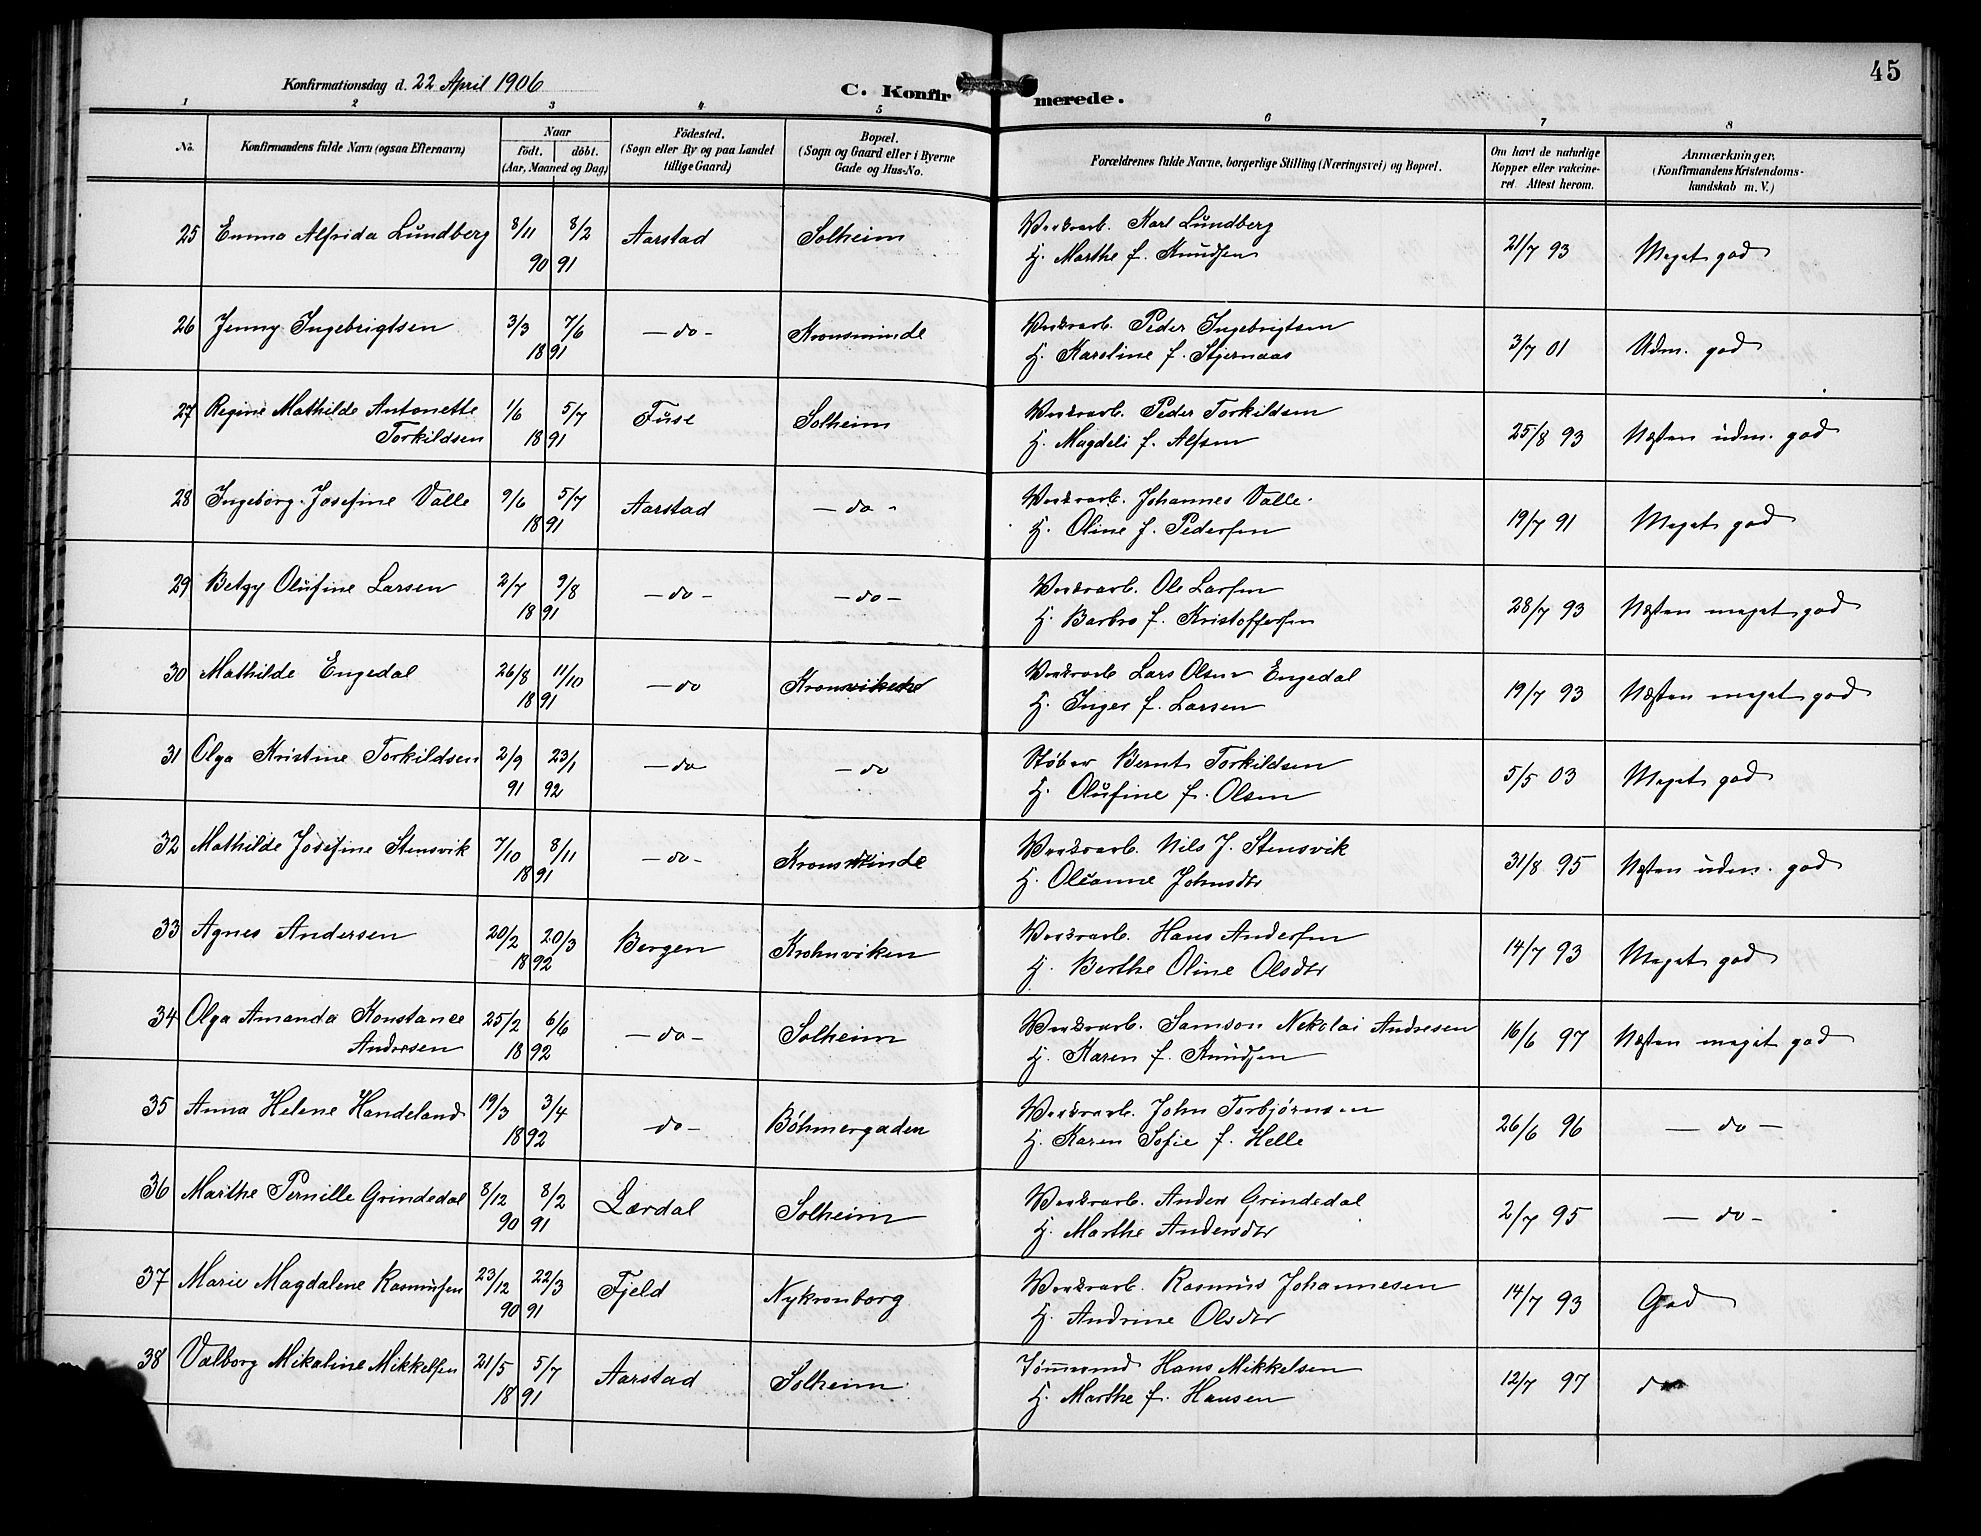 45
Konfirmationsdag d. 22 April 1906
C. Konfirmerede.
1 2 3 4 5 6 7 8
No. Konfirmandens fulde Navn (ogsaa Efternavn) Naar født. døbt. (Aar, Maaned og Dag) Fødested. (Sogn eller By og paa Landet tillige Gaard) Bopæl. (Sogn og Gaard eller i Byerne Gade og Hus-No. Forældrenes fulde Navne, borgerlige Stilling (Næringsvei) og Bopæl. Om havt de naturlige Kopper eller vakcineret. Attest herom. Anmærkninger. (Konfirmandens Kristendomskundskab m. V.)
25 Emma Alfrida Lundberg 8/11 8/2 Aarstad Solheim Værkarb. Karl Lundberg 21/7 93 Meget god
90 91 H. Marthe f. Knudsen
26 Jenny Ingebrigtsen 3/3 7/6 — do - Kronsminde Værkarb. Peder Ingebrigtsen 3/7 01 Udm. god
18 91 H. Karoline f. Stjernaas
27 Regine Mathilde Antonette 1/6 5/7 Fuse Solheim Værkarb. Peder Torkildsen 25/8 93 Næsten udm. god
Torkildsen 18 91 H. Magdeli f. Alfsen
28 Ingeborg Josefine Valle 9/6 5/7 Aarstad — do - Værkarb. Johannes Valle 19/7 91 Meget god
18 91 H. Oline f. Pedersen
29 Betzy Olufine Larsen 2/7 9/8 — do - — do - Værkarb. Ole Larsen 28/7 93 Næsten meget god
18 91 H. Barbro f. Kristoffersen
30 Mathilde Engedal 26/8 11/10 — do Værkarb Lars Olsen Engedal 19/7 93 Næsten meget god
18 91 H. Inger f. Larsen
31 Olga Kristine Torkildsen 2/9 23/1 — do — do Støber Bernt Torkildsen 5/5 03 Meget god
91 92 H. Olufine f. Olsen
32 Mathilde Josefine Stensvik 7/10 8/11 — do - Kronsminde Værkarb. Nils J. Stensvik 31/8 95 Næsten udm. god
18 91 H. Oleanne Johnsdtr
33 Agnes Andersen 20/2 20/3 Bergen Krohnviken Værkarb. Hans Andersen 14/7 93 Meget god
18 92 H. Berthe Oline Olsdtr
34 Olga Amanda Konstance 25/2 6/6 — do - Solheim Værkarb. Samson Nikolai Andresen 16/6 97 Næsten meget god
Andresen 18 92 H. Karen f. Knudsen
35 Anna Helene Handeland 19/3 3/4 do - Bøhmergaden Værkarb. John Torbjørnsen 26/6 96 — do —
18 92 H. Karen Sofie f. Helle
36 Marthe Pernille Grindedal 8/12 8/2 Lærdal Solheim Værkarb. Anders Grindedal 2/7 95 — do -
90 91 H. Marthe Andersdtr
37 Marie Magdalene Rasmussen 23/12 22/3 Fjeld Nykronborg Værkarb. Rasmus Johannesen 14/7 93 God
90 91 H. Andrine Olsdtr
38 Valborg Mikaline Mikkelsen 21/5 5/7 Aarstad Solheim Tømmermd Hans Mikkelsen 12/7 97 do
18 91 H. Marthe f. Hansen